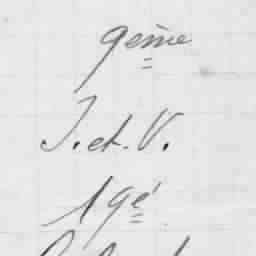 9eme
I. et. V.
19e